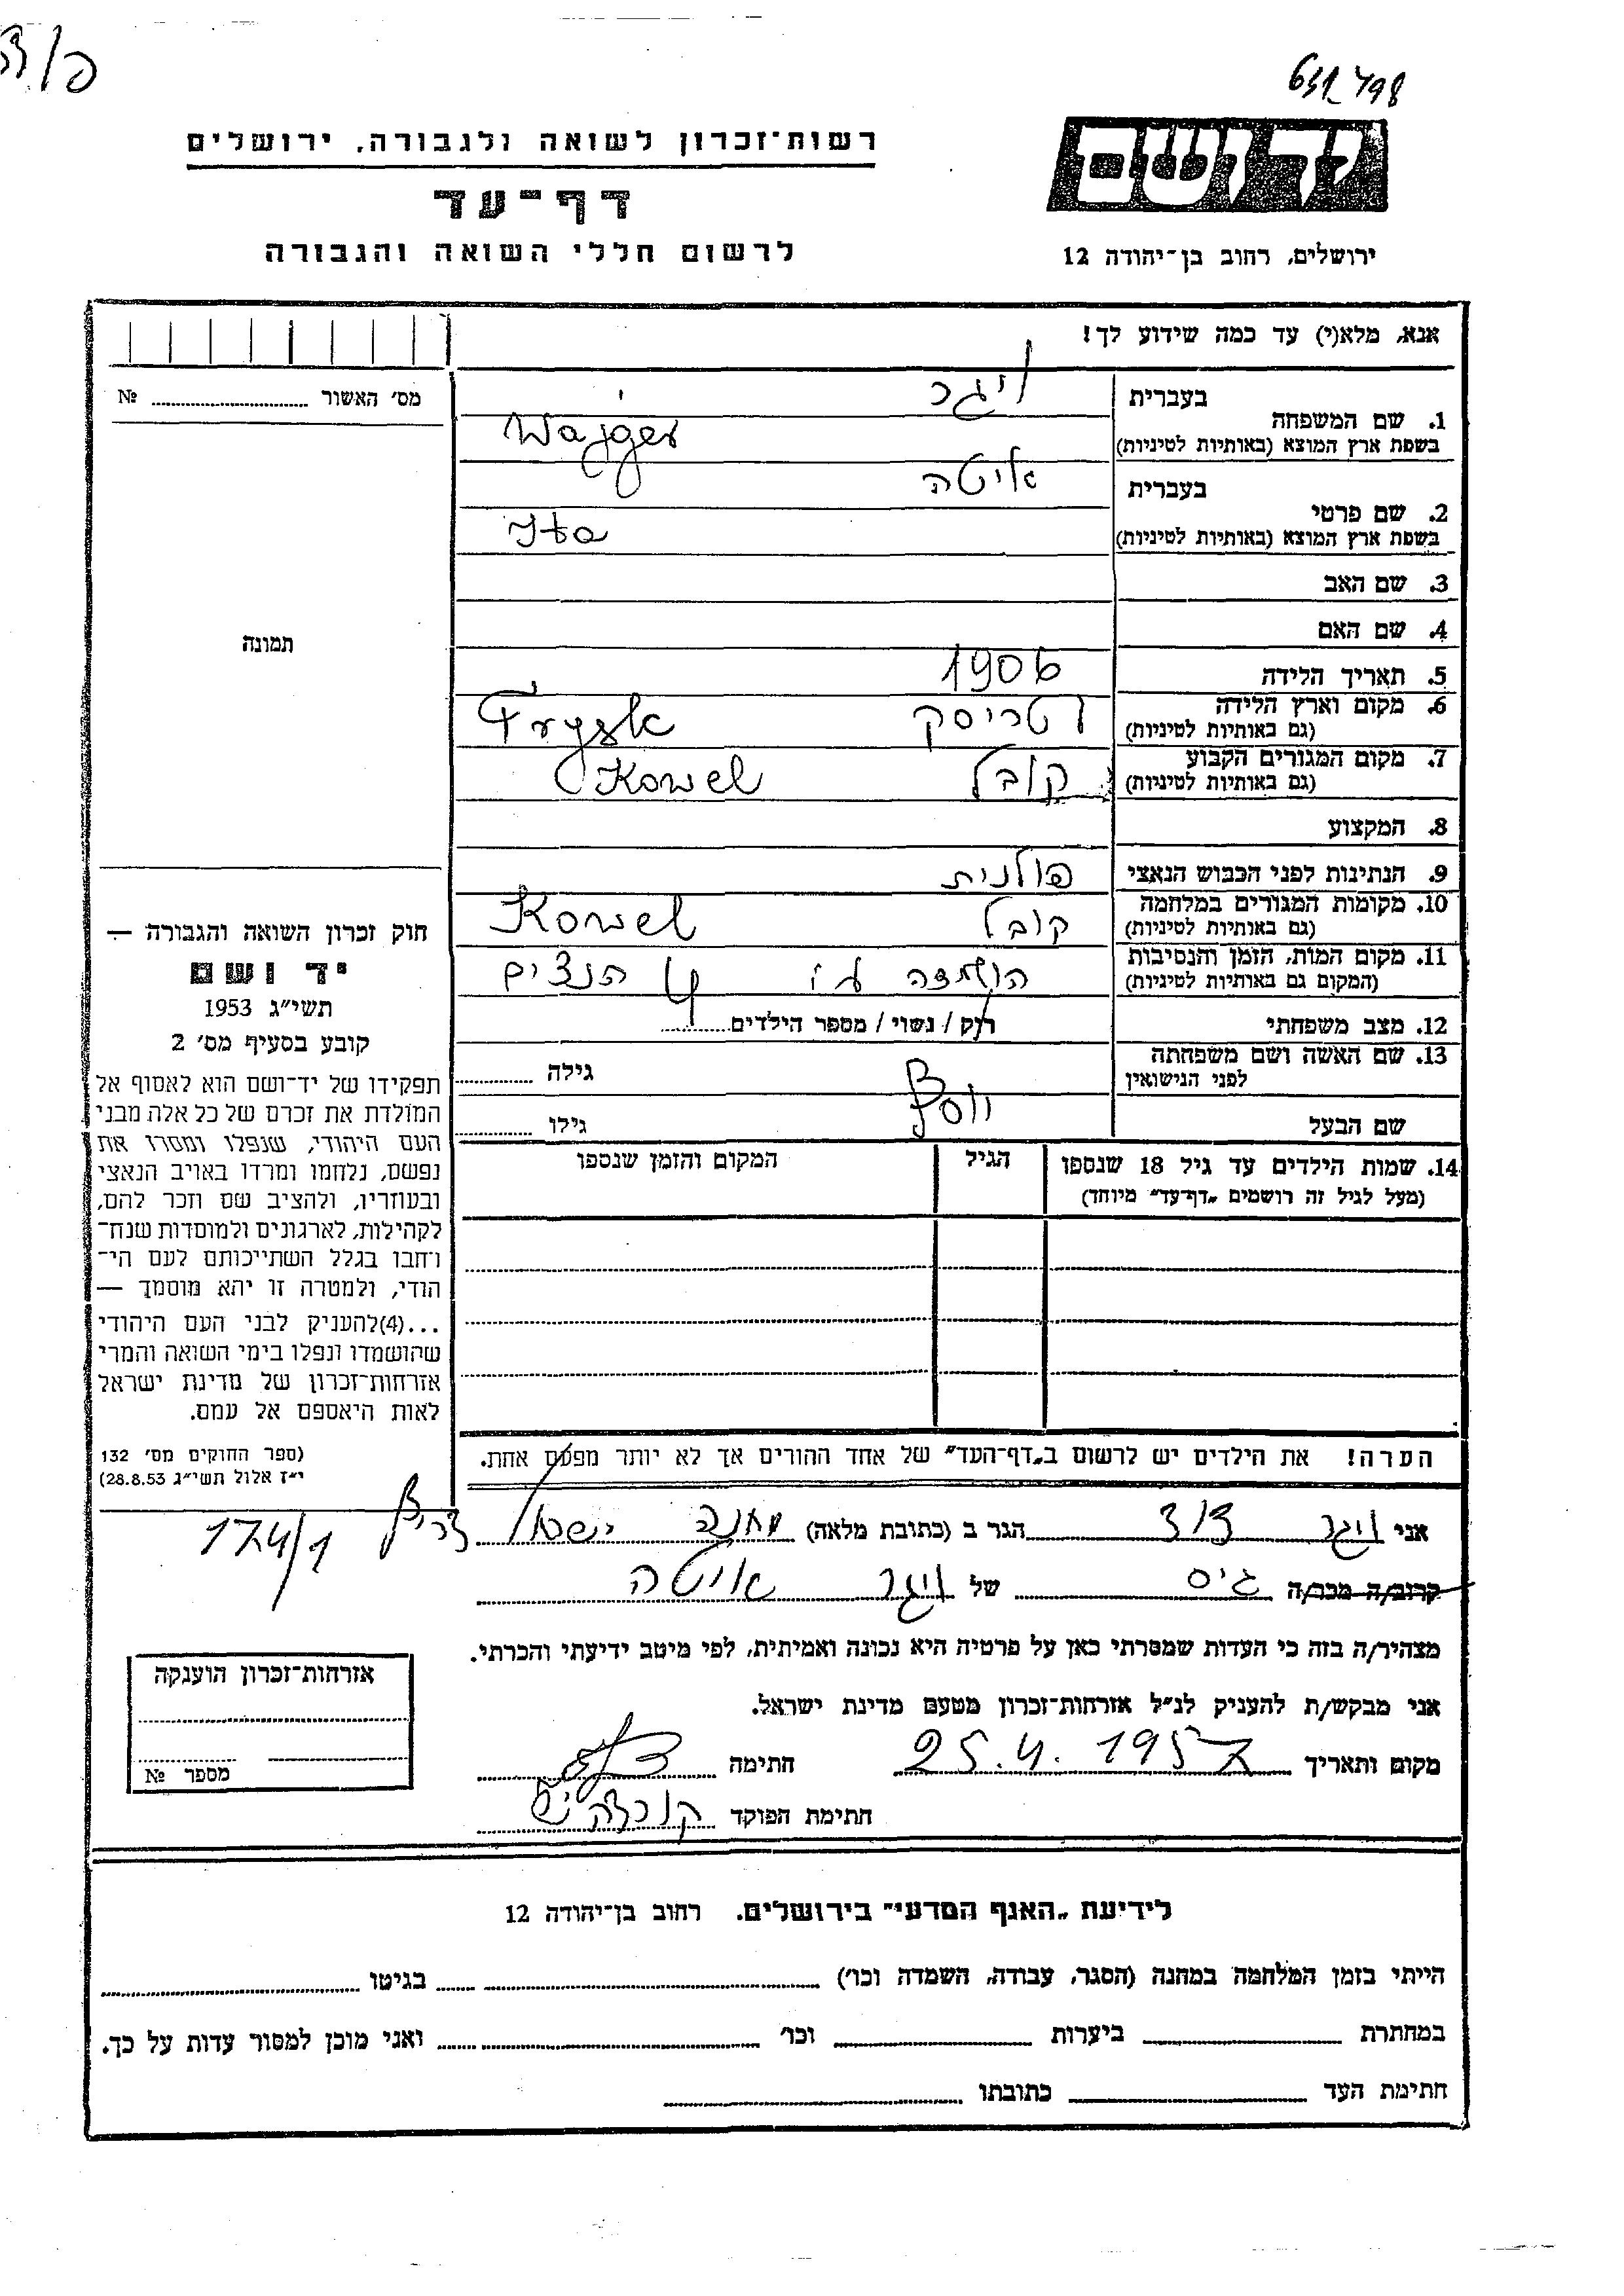 רשות־זכרון לשואה ולגבורה, ירושלים
דף־עד
לרשום חללי השואה והגבורה
יד ושם
ירושלים, רחוב בן־יהודה 12
אנא, מלא(י) עד כמה שידוע לך!
מס׳ האשור № 
1. שם המשפחה
בעברית ויגר
בשפת ארץ המוצא (באותיות לטיניות) Wajger
2. שם פרטי
בעברית איטה
בשפת ארץ המוצא (באותיות לטיניות) Ita
3. שם האב
4. שם האם
תמונה
5. תאריך הלידה 1906
6. מקום וארץ הלידה
(גם באותיות לטיניות) טריסק Trysk
7. מקום המגורים הקבוע
(גם באותיות לטיניות) קובל Kowel
8. המקצוע
9. הנתינות לפני הכבוש הנאצי פולנית
10. מקומות המגורים במלחמה
(גם באותיות לטיניות) קובל Kowel
11. מקום המות, הזמן והנסיבות
(המקום גם באותיות לטיניות) הושמדה ע״י הנצים
12. מצב משפחתי רוק / נשוי / מספר הילדים 4
13. שם האשה ושם משפחתה
לפני הנישואין גילה
שם הבעל יוסף גילו
14. שמות הילדים עד גיל 18 שנספו
(מעל לגיל זה רושמים „דף־עד״ מיוחד)
הגיל
המקום והזמן שנספו
חוק זכרון השואה והגבורה —
יד ושם
תשי״ג 1953
קובע בסעיף מס׳ 2
תפקידו של יד־ושם הוא לאסוף אל
המולדת את זכרם של כל אלה מבני
העם היהודי, שנפלו ומסרו את
נפשם, נלחמו ומרדו באויב הנאצי
ובעוזריו, ולהציב שם וזכר להם,
לקהילות, לארגונים ולמוסדות שנח־
רחבו בגלל השתייכותם לעם הי־
הודי, ולמטרה זו יהא מוסמך —
...(4)להעניק לבני העם היהודי
שהושמדו ונפלו בימי השואה והמרי
אזרחות־זכרון של מדינת ישראל
לאות היאספם אל עמם.
(ספר החוקים מס׳ 132
י״ז אלול תשי״ג 28.8.53)
הערה! את הילדים יש לרשום ב„דף־העד״ של אחד ההורים אך לא יותר מפעם אחת.
אני ויגר דוד הגר ב (כתובת מלאה) מחנה ישראל צריף 174/1
קרוב/ה מכר/ה גיס של ויגר איטה
מצהיר/ה בזה כי העדות שמסרתי כאן על פרטיה היא נכונה ואמיתית, לפי מיטב ידיעתי והכרתי.
אני מבקש/ת להעניק לנ״ל אזרחות־זכרון מטעם מדינת ישראל.
מקום ותאריך 25.4.1957 חתימה
חתימת הפוקד
אזרחות־זכרון הוענקה
מספר №
לידיעת „האגף המדעי״ בירושלים. רחוב בן־יהודה 12
הייתי בזמן המלחמה במחנה (הסגר, עבודה, השמדה וכו׳) בגיטו
במחתרת ביערות וכו׳ ואני מוכן למסור עדות על כך.
חתימת העד כתובתו